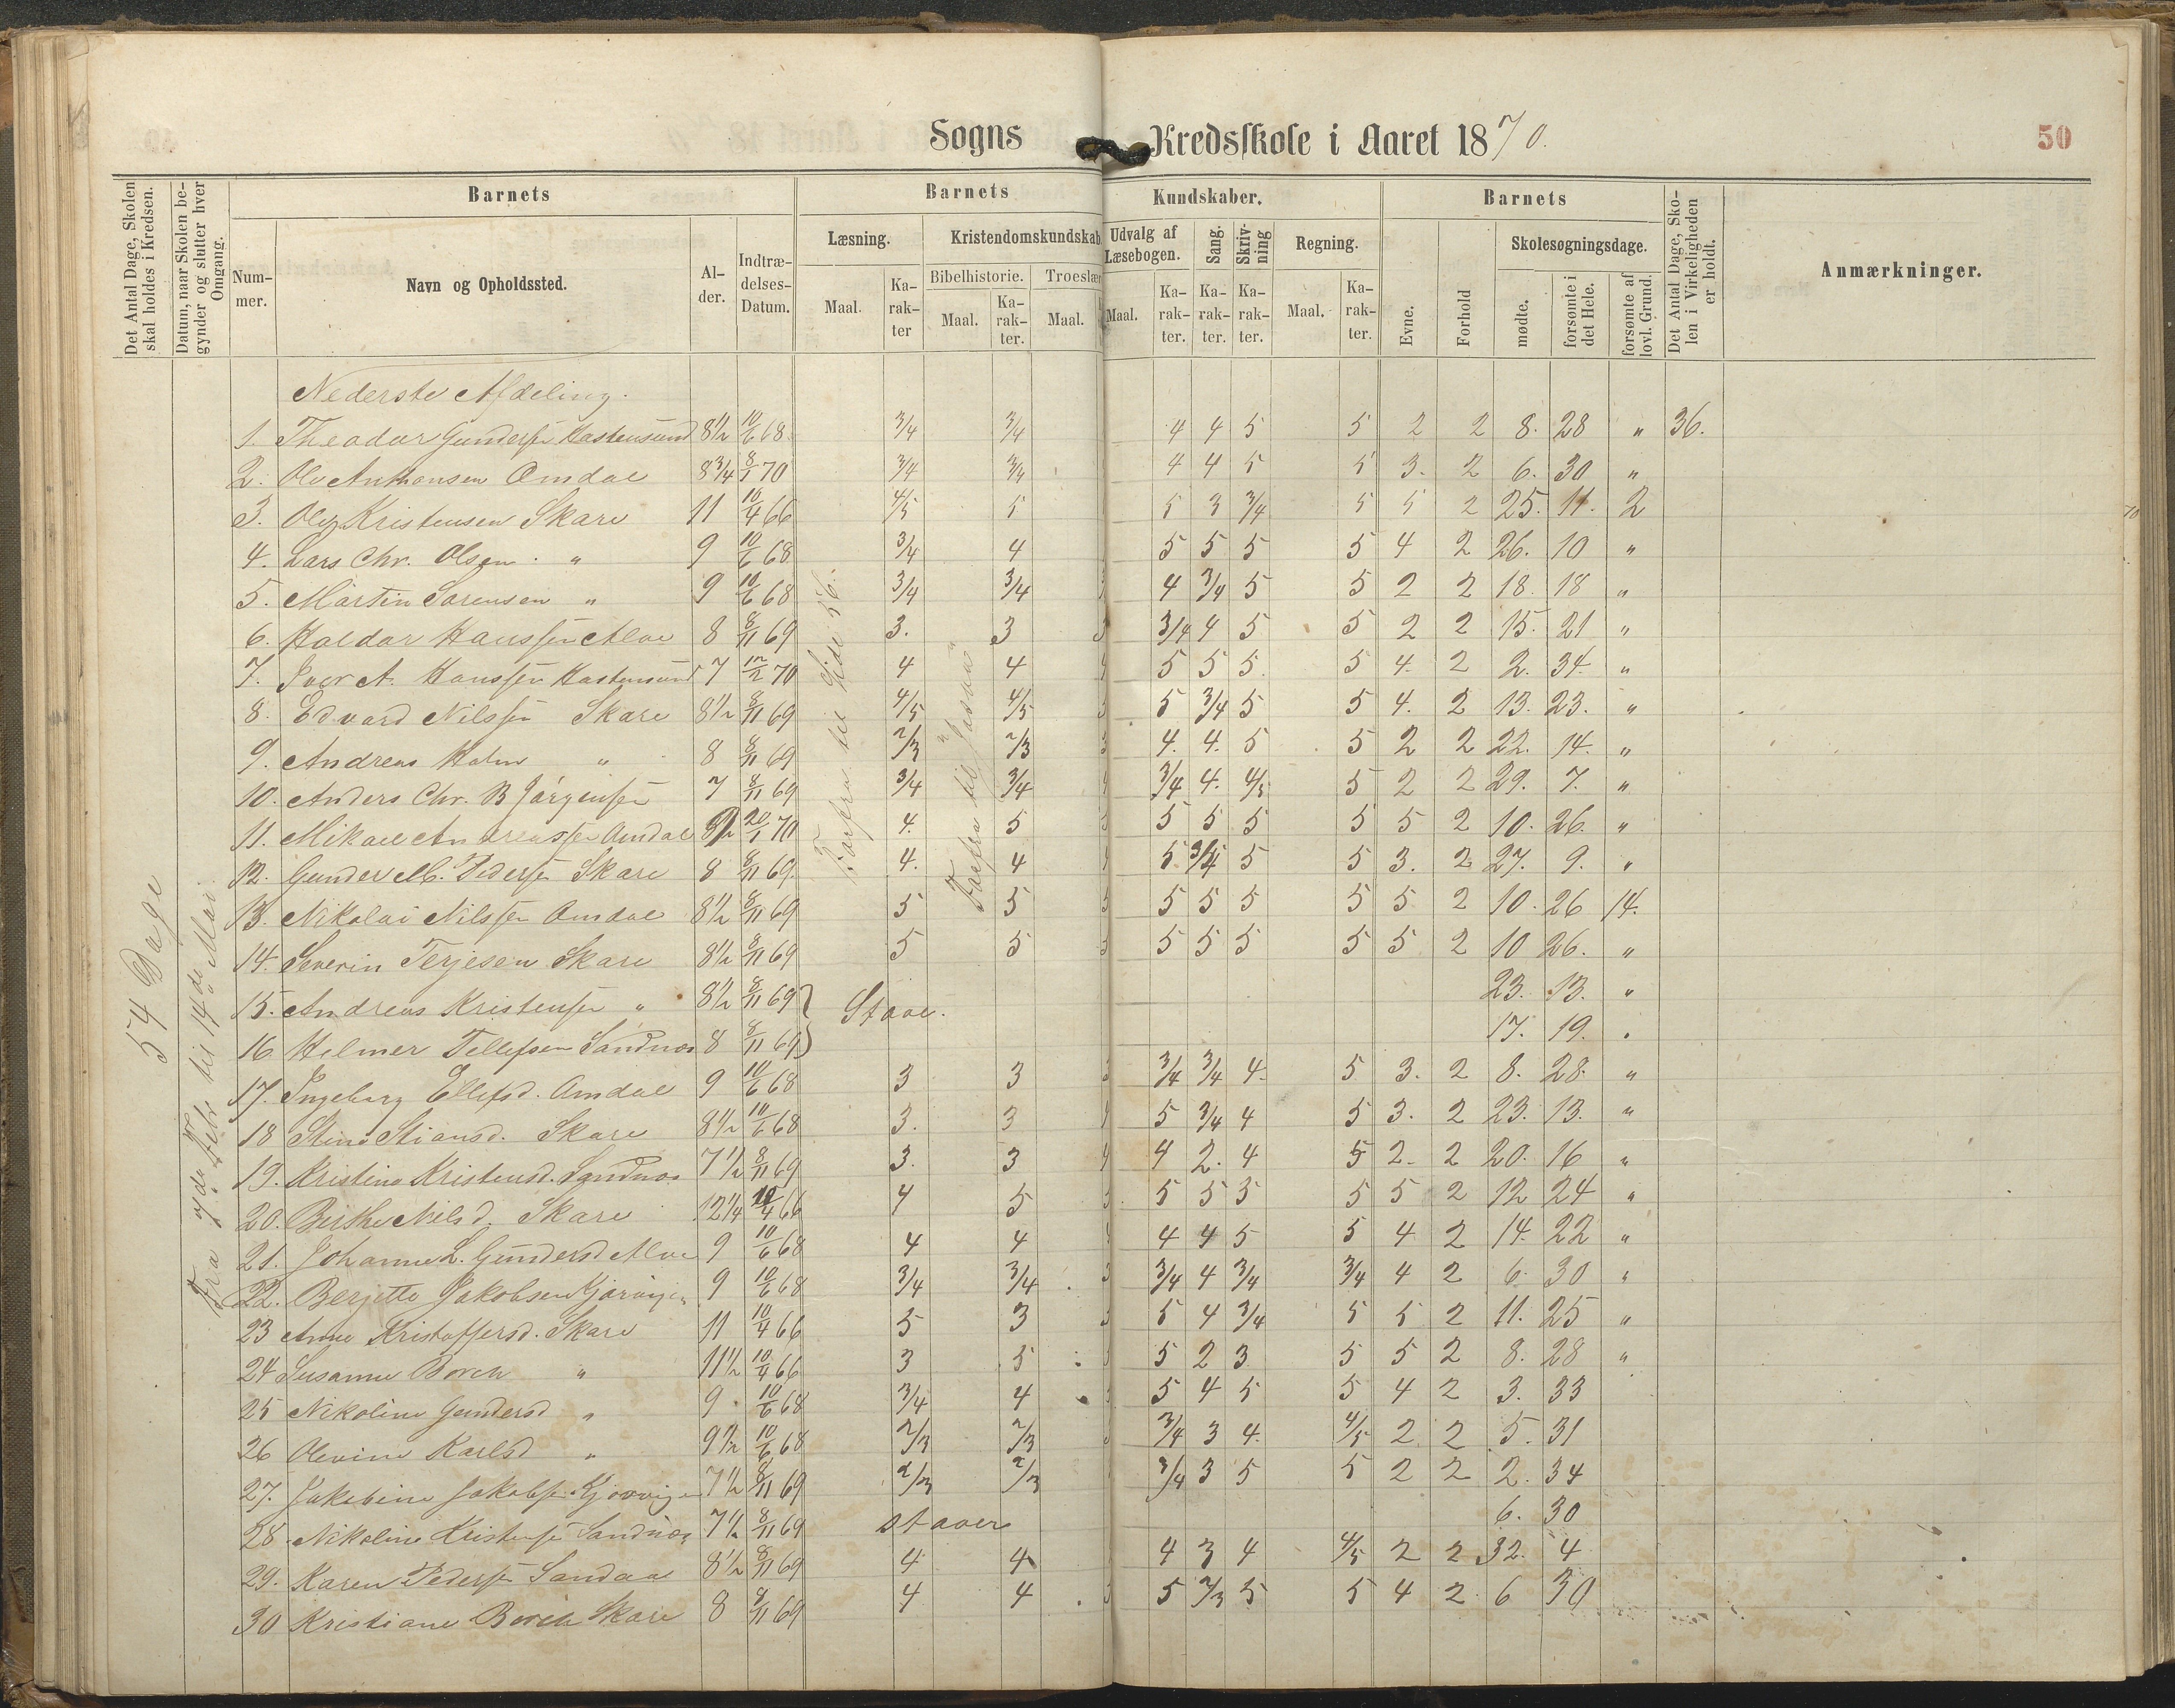 Sogns Kredsskole i Aaret 1870.
50
Det Antal Dage, Skolen skal holdes i Kredsen.
Datum, naar Skolen begynder og slutter hver Omgang.
Barnets
Nummer.
Navn og Opholdssted.
Alder.
Indtrædelses-Datum.
Barnets Kundskaber.
Læsning.
Maal.
Karakter
Kristendomskundskab
Bibelhistorie.
Maal.
Karakter.
Troeslær
Maal.
Udvalg af Læsebogen.
Maal.
Karakter.
Sang.
Karakter.
Skrivning
Karakter.
Regning.
Maal.
Karakter.
Barnets
Evne.
Forhold
Skolesøgningsdage.
mødte.
forsømte i det Hele.
forsømte af lovl. Grund.
Det Antal Dage, Skolen i Virkeligheden er holdt.
Anmærkninger.
54 Dage
Fra 7de Febr til 14de Mai.
Forfra til Side 56.
Forfra til "Josva"
Nederste Afdeling.
1. Theodor Gundersen Hastensund 8½ 10/6 68 3/4 3/4 4 4 5 5 2 2 8. 28 " 36.
2. Ole Anthonsen Omdal 8¾ 8/1 70 3/4 3/4 4 4 5 5 3. 2 6. 30 "
3. Ole Kristensen Skare 11 10/4 66 4/5 5 5 3 3/4 5 5 2 25. 11. 2
4. Lars Chr. Olsen " 9 10/6 68 3/4 4 5 5 5 5 4 2 26. 10 "
5. Martin Sørensen " 9 10/6 68 3/4 3/4 3 4 3/4 5 5 2 2 18. 18 "
6. Haldor Hanssen Aloe 8 8/11 69 3. 3 3 3/4 4 5 5 2 2 15. 21 "
7. Iver A. Hanssen Hastensund 7 12/2 70 4 4 4 5 5 5. 5 4. 2 2. 34. "
8. Edvard Nilssen Skare 8½ 8/11 69 4/5 4/5 5 3/4 5 5 4. 2 13. 23. "
9. Andreas Holm " 8 8/11 69 2/3 2/3 3 4. 4. 5 5 2 2 22. 14. "
10. Anders Chr. B Jörgensen 7 8/11 69 3/4 3/4 4 3/4 4. 4/5 5 2 2 29. 7. "
11. Mikael Andreassen Omdal 8½ 20/1 70 4. 5 5 5 5 5 5 2 10. 26. "
12. Gunder M. Pedersen Skare 8 8/11 69 4. 4 4 5 3/4 5 5 3. 2 27. 9. "
13. Nikolai Nilssen Omdal 8½ 8/11 69 5 5 5 5 5 5 5 5 2 10. 26 14.
14. Severin Terjesen Skare 8½ 8/11 69 5 5 5 5 5 5 5 5 2 10 26. "
15. Andreas Kristensen " 8½ 8/11 69 Stave. 23. 13. "
16. Helmer Tellefsen Sandnæs 8 8/11 69 17. 19. "
17. Ingeborg Ellefsd. Omdal 9 10/6 68 3 3 3 3/4 3/4 4. 5 3. 2 8. 28. "
18 Stine Stiansd. Skare 8½ 10/6 68 3. 3 4 5 3/4 4 5 3. 2 23. 13. "
19. Kristine Kristensd. Sandnæs 7½ 8/11 69 3. 3 4 4 2. 4 5 2. 2 20. 16 "
20. Birthe Nilsd. Skare 12¼ 10/4 66 4 5 5 5 5 5 5 5 2 12 24 "
21. Johanne L. Gundersd Aloe 9 10/6 68 4 4 4 4 4 5 5 4 2 14. 22 "
22. Berjette Jakobsen Kjørvigen 9 10/6 68 3/4 3/4 3 3/4 4 3/4 3/4 4 2 6. 30 "
23 Anne Kristoffersd. Skare 11 10/4 66 5 3 5 4 3/4 5 5 2 11. 25 "
24 Susanne Borch " 11½ 10/4 66 3 5 5 2 3 5 5 2 8. 28 "
25 Nikoline Gundersd " 9 10/6 68 3/4 4 5 4 5 5 4 2 3. 33
26 Olevine Karlsd " 9½ 10/6 68 2/3 2/3 3/4 3 4. 4/5 2 2 5. 31
27. Jakobine Jakobsen Kjørvigen 7½ 8/11 69 2/3 2/3 3/4 3 5 5 2 2 2. 34
28. Nikoline Kristensen Sandnæs 7½ 8/11 69 staver 6. 30
29. Karen Pedersen Sandaa 8½ 8/11 69 4 4 4 3 4 4/5 2 2 32. 4
30 Kristiane Borch Skare 8 8/11 69 4 4 5 2/3 5 5 4 2 6 30